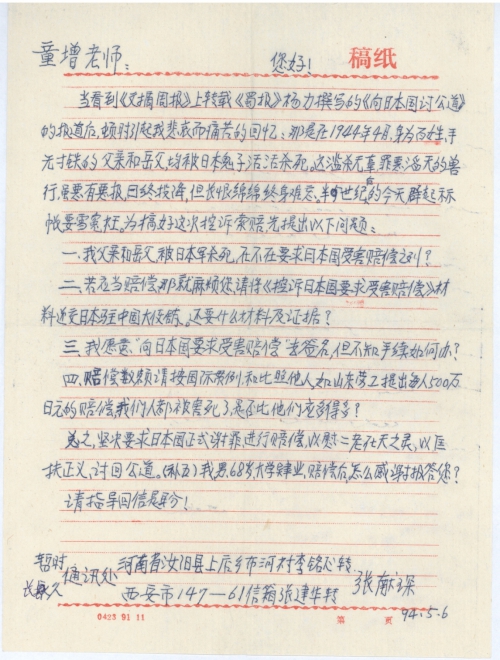 稿纸
童增老师： 您好！
当看到《文摘周报》上转载《蜀报》杨力撰写的《向日本国讨公道》
的报道后，顿时引起我悲戚而痛苦的回忆：那是在1944年4月，身为百姓，手
无寸铁的父亲和岳父，均被日本鬼子活活杀死。这滥杀无辜，罪恶滔天的兽
行，虽恶有恶报，日终投降，但长恨绵绵终身难忘。半世纪后的今天群起示
帜要雪冤枉。为搞好这次控诉索赔先提出以下问题：
一、我父亲和岳父，被日本军杀死，在不在要求日本国受害赔偿之列？
二、若应当赔偿，那就麻烦您，请将《控诉日本国要求受害赔偿》材
料递交日本驻中国大使馆。还要什么材料及证据？
三、我愿意“向日本国要求受害赔偿”去签名，但不知手续如何办？
四、赔偿数额请按国际惯例，和比照他人如山东劳工提出每人500万
日元的赔偿，我们人都被害死了，是否比他们应当得多？
总之，坚决要求日本国正式谢罪，进行赔偿，以慰二老在天之灵，以匡
扶正义，讨回公道。（补五）我男，68岁，大学肄业，赔偿后，怎么感谢报答您？
请指导回信是盼！
暂时 通讯处 河南省汝阳县上店乡市河村李铭心转
长久 西安市147—61信箱张建华转 张南琛
0423 91 11 第 页 94.5.6